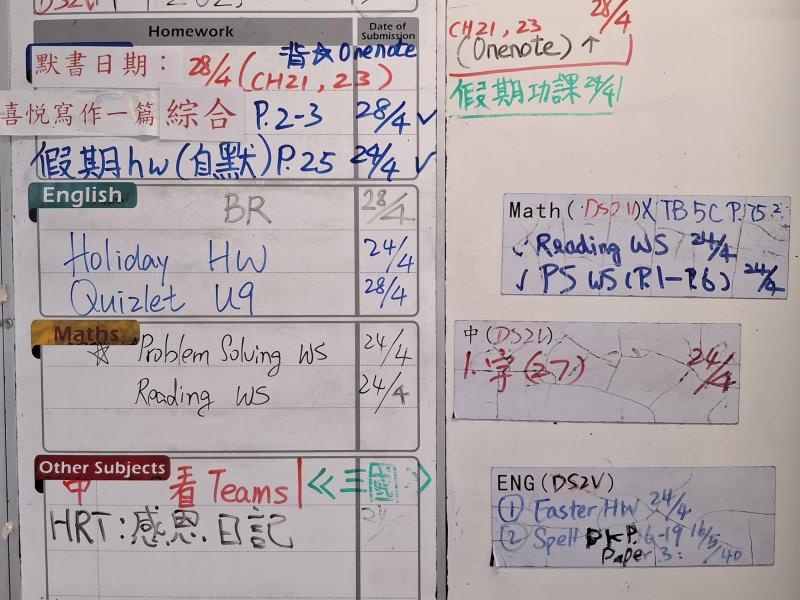 Homework
Date of Submission
背長 Onenote
默書日期： 28/4 (CH21, 23)
喜悅寫作一篇 綜合 P.2-3 28/4 ✓
假期hw(自默)P.25 24/4 ✓
English
BR 28/4
Holiday HW 24/4
Quizlet U9 28/4
Maths
☆ Problem Solving WS 24/4
Reading WS 24/4
Other Subjects
中 看 Teams
HRT:感恩日記
CH21, 23 28/4
(Onenote) ↑
假期功課 24/4
Math(DS2V) TB 5C P.75
✓ Reading WS 24/4
✓ P5 WS (P.1-P.6) 24/4
中(DS2V)
1. 字(27) 24/4
ENG(DS2V)
① Easter HW 24/4
② Spell
Paper 3: